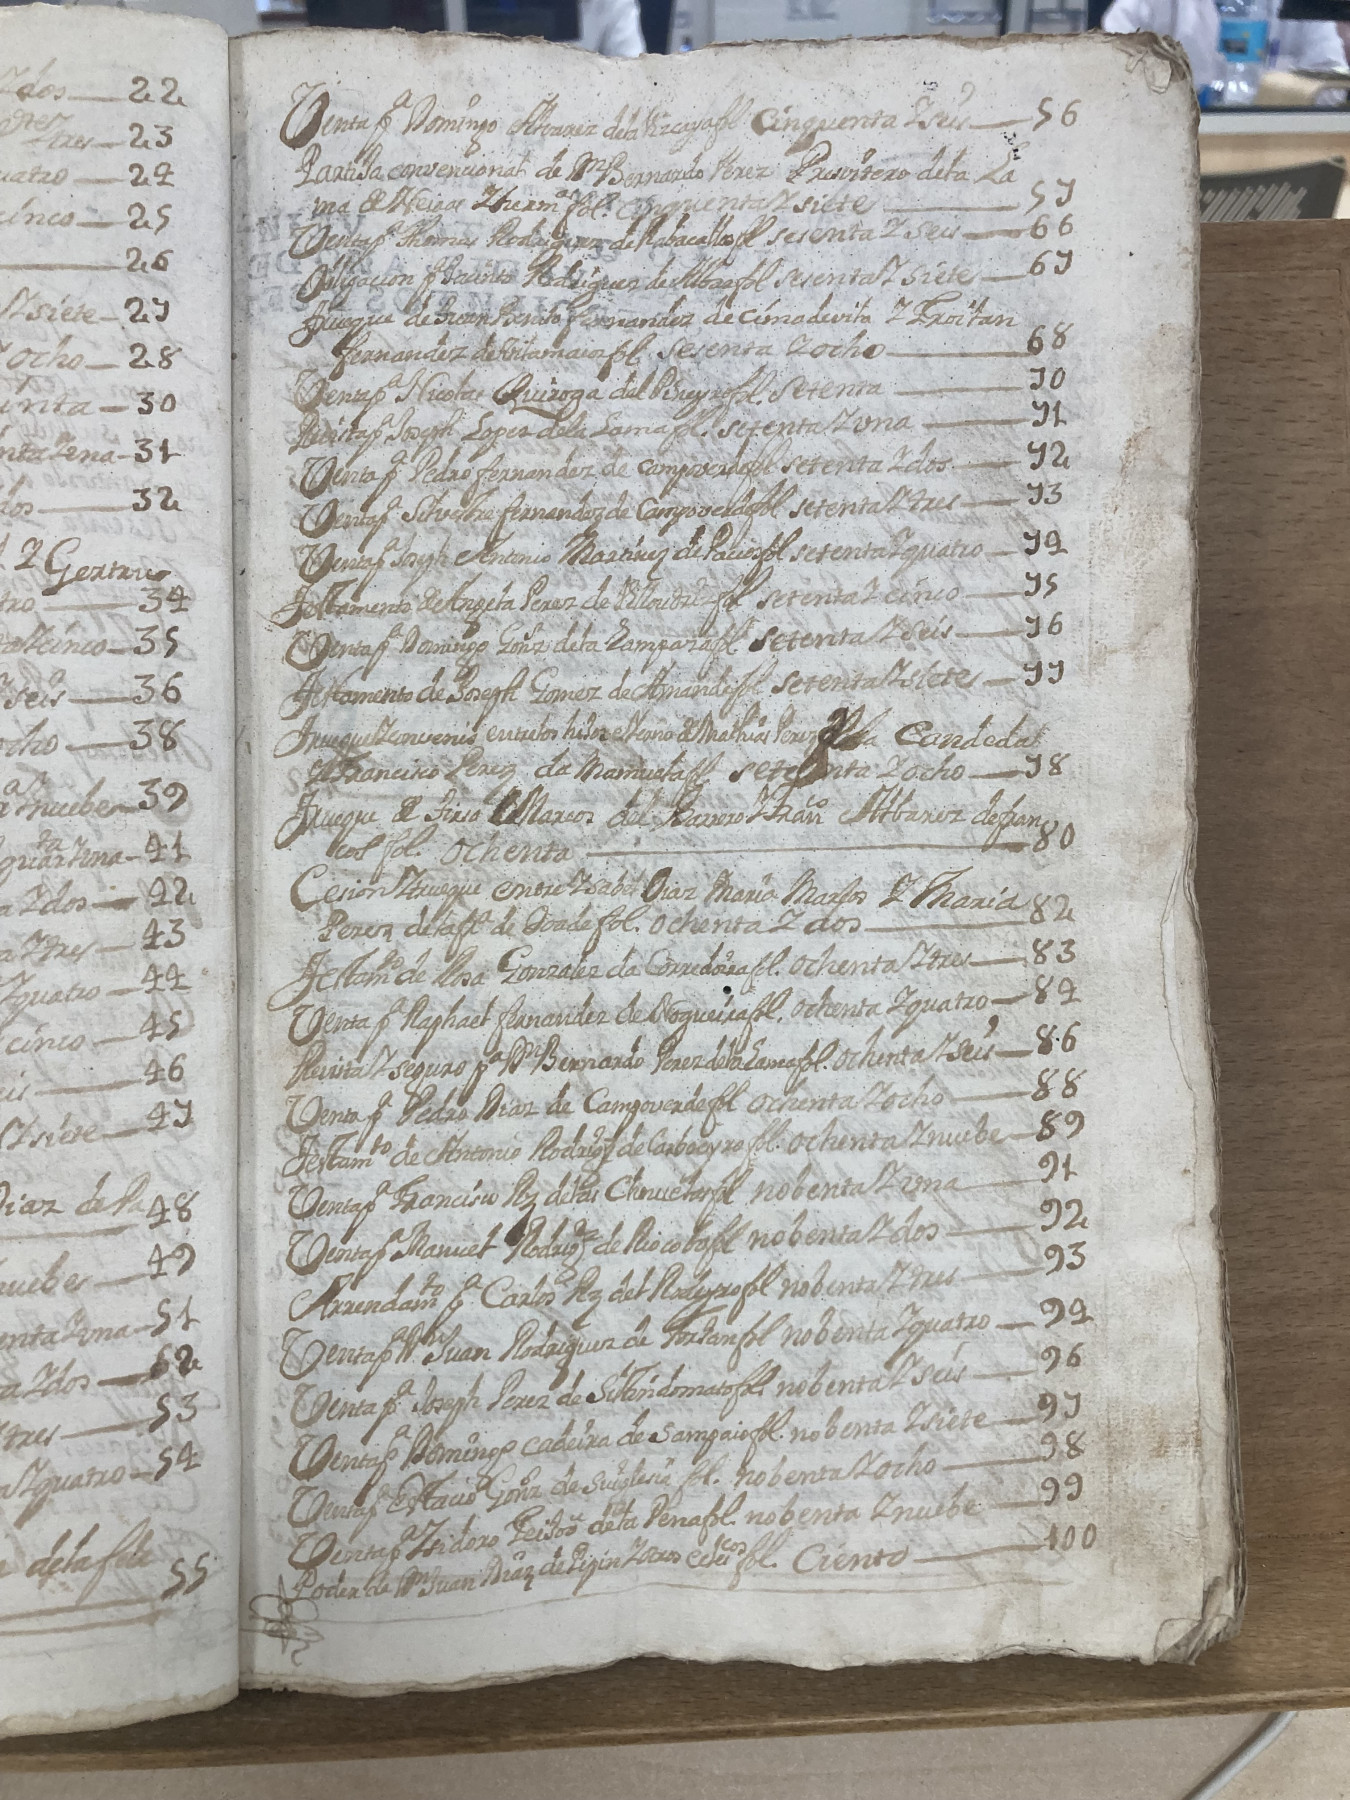 2 dos — 22
tres
2 tres — 23
uatro — 24
cinco — 25
26
2 siete — 27
2 ocho — 28
inta — 30
nta 2 una — 31
dos — 32
2 Gertrus
tro — 34
cinco — 35
seis — 36
ocho — 38
2 nuebe — 39
quar.ta 2 una — 41
a 2 dos — 42
a 2 tres — 43
2 quatro — 44
cinco — 45
eis — 46
2 siete — 47
Diaz de Pa
48
nuebe — 49
enta 2 una — 51
a 2 dos — 52
2 tres — 53
a 2 quatro — 54
de la
55
Venta p.a Domingo Alvarez de la Vizcaya fol. Cinquenta 2 seis — 56
Partida convencional de D.n Bernardo Perez Presvitero de la La
ma de Neiras 2 herm.a fol. cinquenta 2 siete — 57
Venta p.a Thomas Rodriguez de Rabacallos fol. sesenta 2 seis — 66
Obligacion p.a Jacinto Rodriguez de fol. sesenta 2 siete — 67
Trueque de Juan Benito fernandez de cimadevila 2 Froilan
fernandez de Vilamaior fol. sesenta 2 ocho — 68
Venta p.a Nicolas Quiroga del Piñeyro fol. setenta — 70
p.a Joseph Lopez de la Lama fol. setenta 2 una — 71
Venta p.a Pedro fernandez de campoverde fol. setenta 2 dos — 72
Venta p.a Silvestre fernandez de Campoverde fol. setenta 2 tres — 73
Venta p.a Joseph Antonio Martinez de Pacios fol. setenta 2 quatro — 74
Testamento de Angela Perez de fol. setenta 2 cinco — 75
Venta p.a Domingo Gonz. de la Zampaza fol. setenta 2 seis — 76
Testamento de Joseph Gomez de Amande fol. setenta 2 siete — 77
Trueque 2 convenio entre los hijos 2 Yerno de Mathias Perez Candeda
2 Francisco Perez da Mamuela fol. setenta 2 ocho — 78
Trueque de Marcos del Barrero 2 Fran.co Albarez de fran
cos fol. ochenta — 80
Cesion 2 trueque entre Ysabel Diaz Maria Marcos 2 Maria
Perez de la f.a de Doade fol. ochenta 2 dos — 82
Testam.to de Rosa Gonzalez da Corredoira fol. ochenta 2 tres — 83
Venta p.a Raphael fernandez de Nogueira fol. ochenta 2 quatro — 84
2 seguro p.a D.n Bernardo Perez de la Lama fol. ochenta 2 seis — 86
Venta p.a Pedro Diaz de Campoverde fol. ochenta 2 ocho — 88
Testam.to de Antonio Rodrig.z de Carboeyro fol. ochenta 2 nuebe — 89
Venta p.a Francisco Rz de las fol. nobenta 2 una — 91
Venta p.a Manuel Rodrig.z de Riocobo fol. nobenta 2 dos — 92
Arrendam.to p.a Carlos Rz del fol. nobenta 2 tres — 93
Venta p.a D.n Juan Rodriguez de fol. nobenta 2 quatro — 94
Venta p.a Joseph Perez de fol. nobenta 2 seis — 96
Venta p.a Domingo cadeira de Sampaio fol. nobenta 2 siete — 97
Venta p.a Gonz. de fol. nobenta 2 ocho — 98
Venta p.a Ysidoro Feijoo de la Pena fol. nobenta 2 nuebe — 99
Poder de D.n Juan Diaz de Pipin 2 otros fol. Ciento — 100